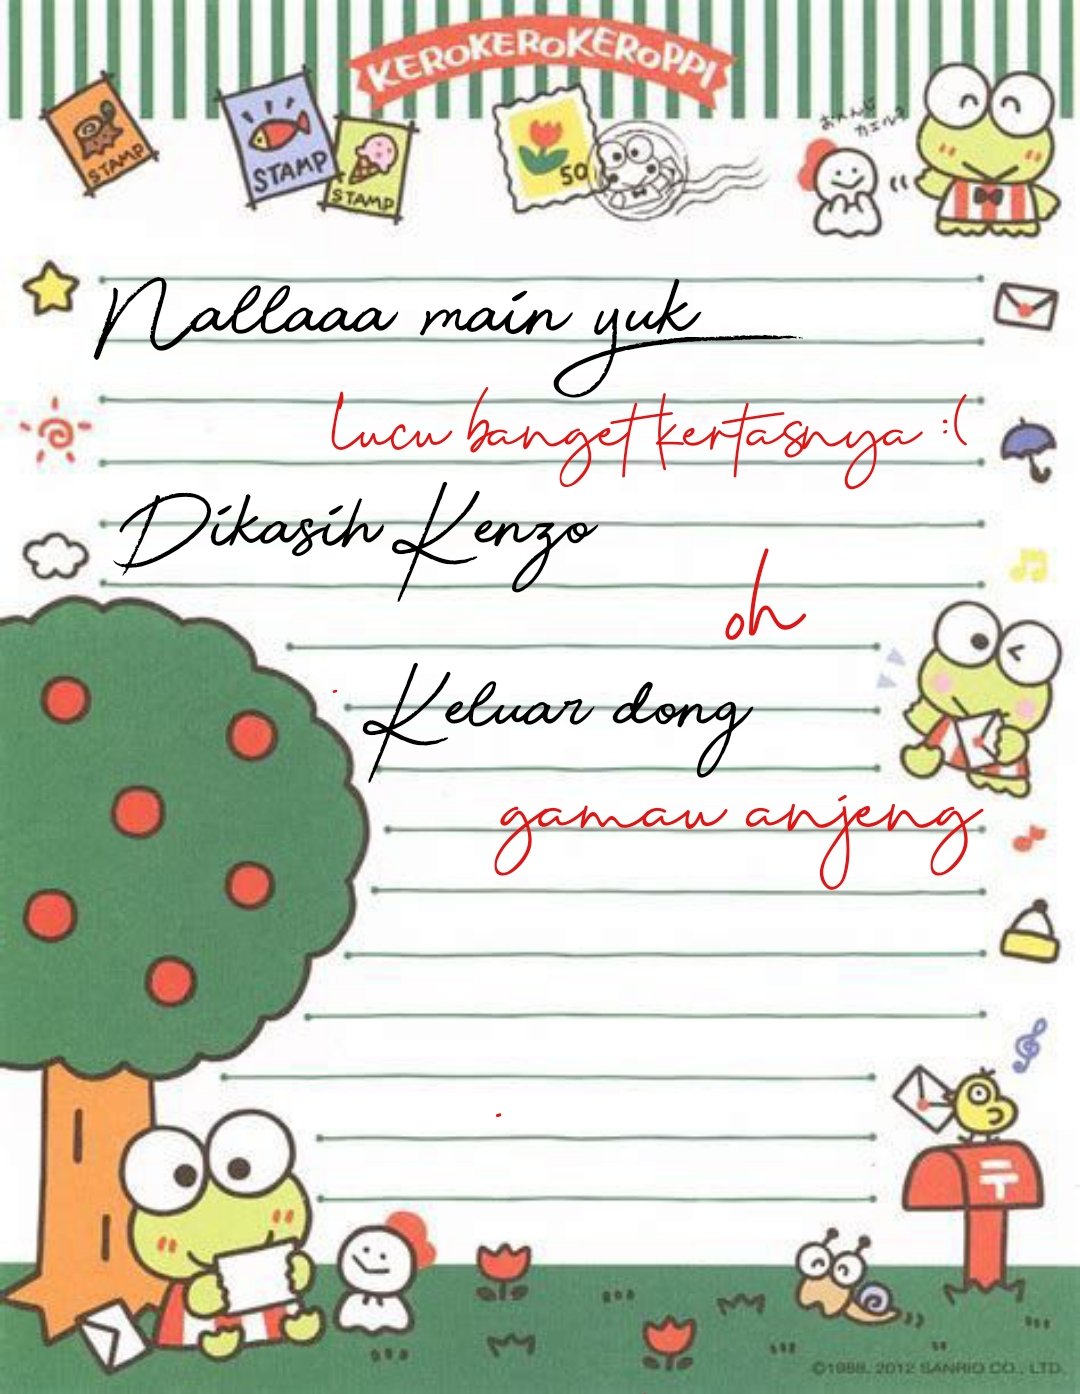 KEROKEROKEROPPI
STAMP
STAMP
STAMP
50
Nallaaa main yuk
lucu banget kertasnya :(
Dikasih Kenzo
oh
Keluar dong
gamau anjeng
©1988, 2012 SANRIO CO., LTD.